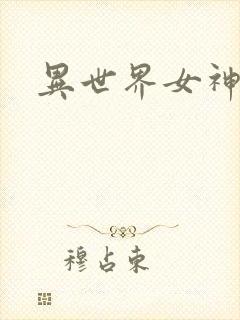 異世界女神
穆占東